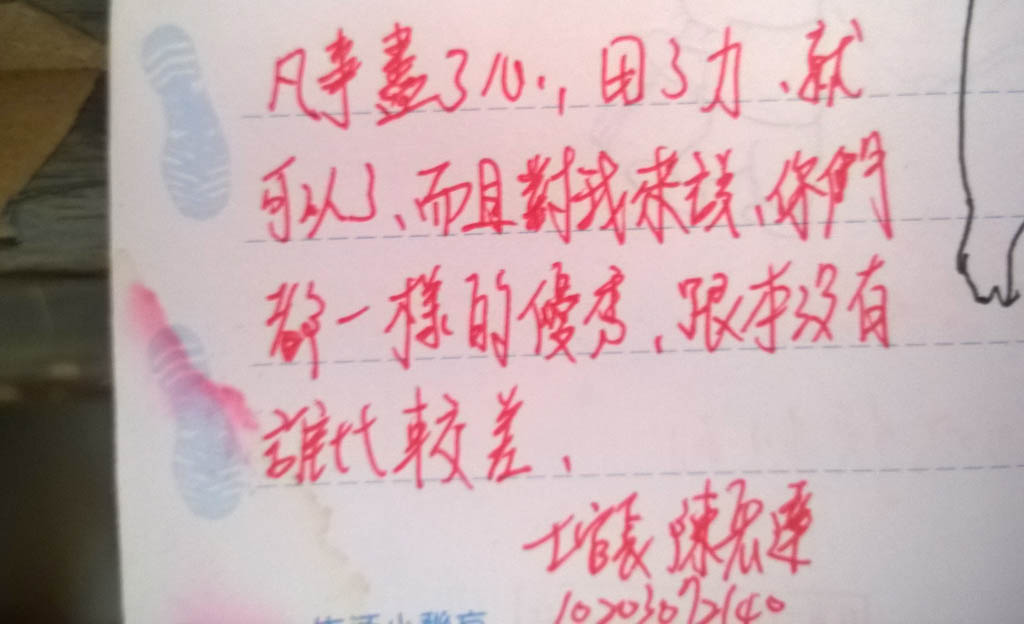 凡事盡了心，用了力、就
可以了、而且對我來說、你們
都一樣的優秀、跟本沒有
誰比較差、
士官長 陳宏達
10203072140